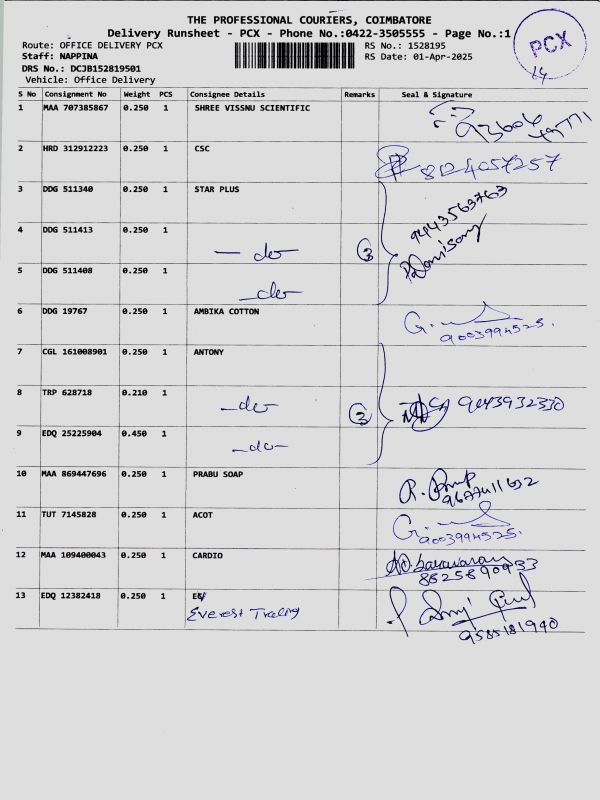 THE PROFESSIONAL COURIERS, COIMBATORE
Delivery Runsheet - PCX - Phone No.:0422-3505555 - Page No.:1
Route: OFFICE DELIVERY PCX RS No.: 1528195
Staff: NAPPINA RS Date: 01-Apr-2025
DRS No.: DCJB152819501
Vehicle: Office Delivery
PCX
S No Consignment No Weight PCS Consignee Details Remarks Seal & Signature
1 MAA 707385867 0.250 1 SHREE VISSNU SCIENTIFIC
2 HRD 312912223 0.250 1 CSC
3 DDG 511340 0.250 1 STAR PLUS 9443563763
4 DDG 511413 0.250 1 - do - 3
5 DDG 511408 0.250 1 - do -
6 DDG 19767 0.250 1 AMBIKA COTTON 9003994525.
7 CGL 161008901 0.250 1 ANTONY
8 TRP 628718 0.210 1 - do - 3 9043932330
9 EDQ 25225904 0.450 1 - do -
10 MAA 869447696 0.250 1 PRABU SOAP
11 TUT 7145828 0.250 1 ACOT 9003994525.
12 MAA 109400043 0.250 1 CARDIO 8825890933
13 EDQ 12382418 0.250 1 Everest Trading 9585181940